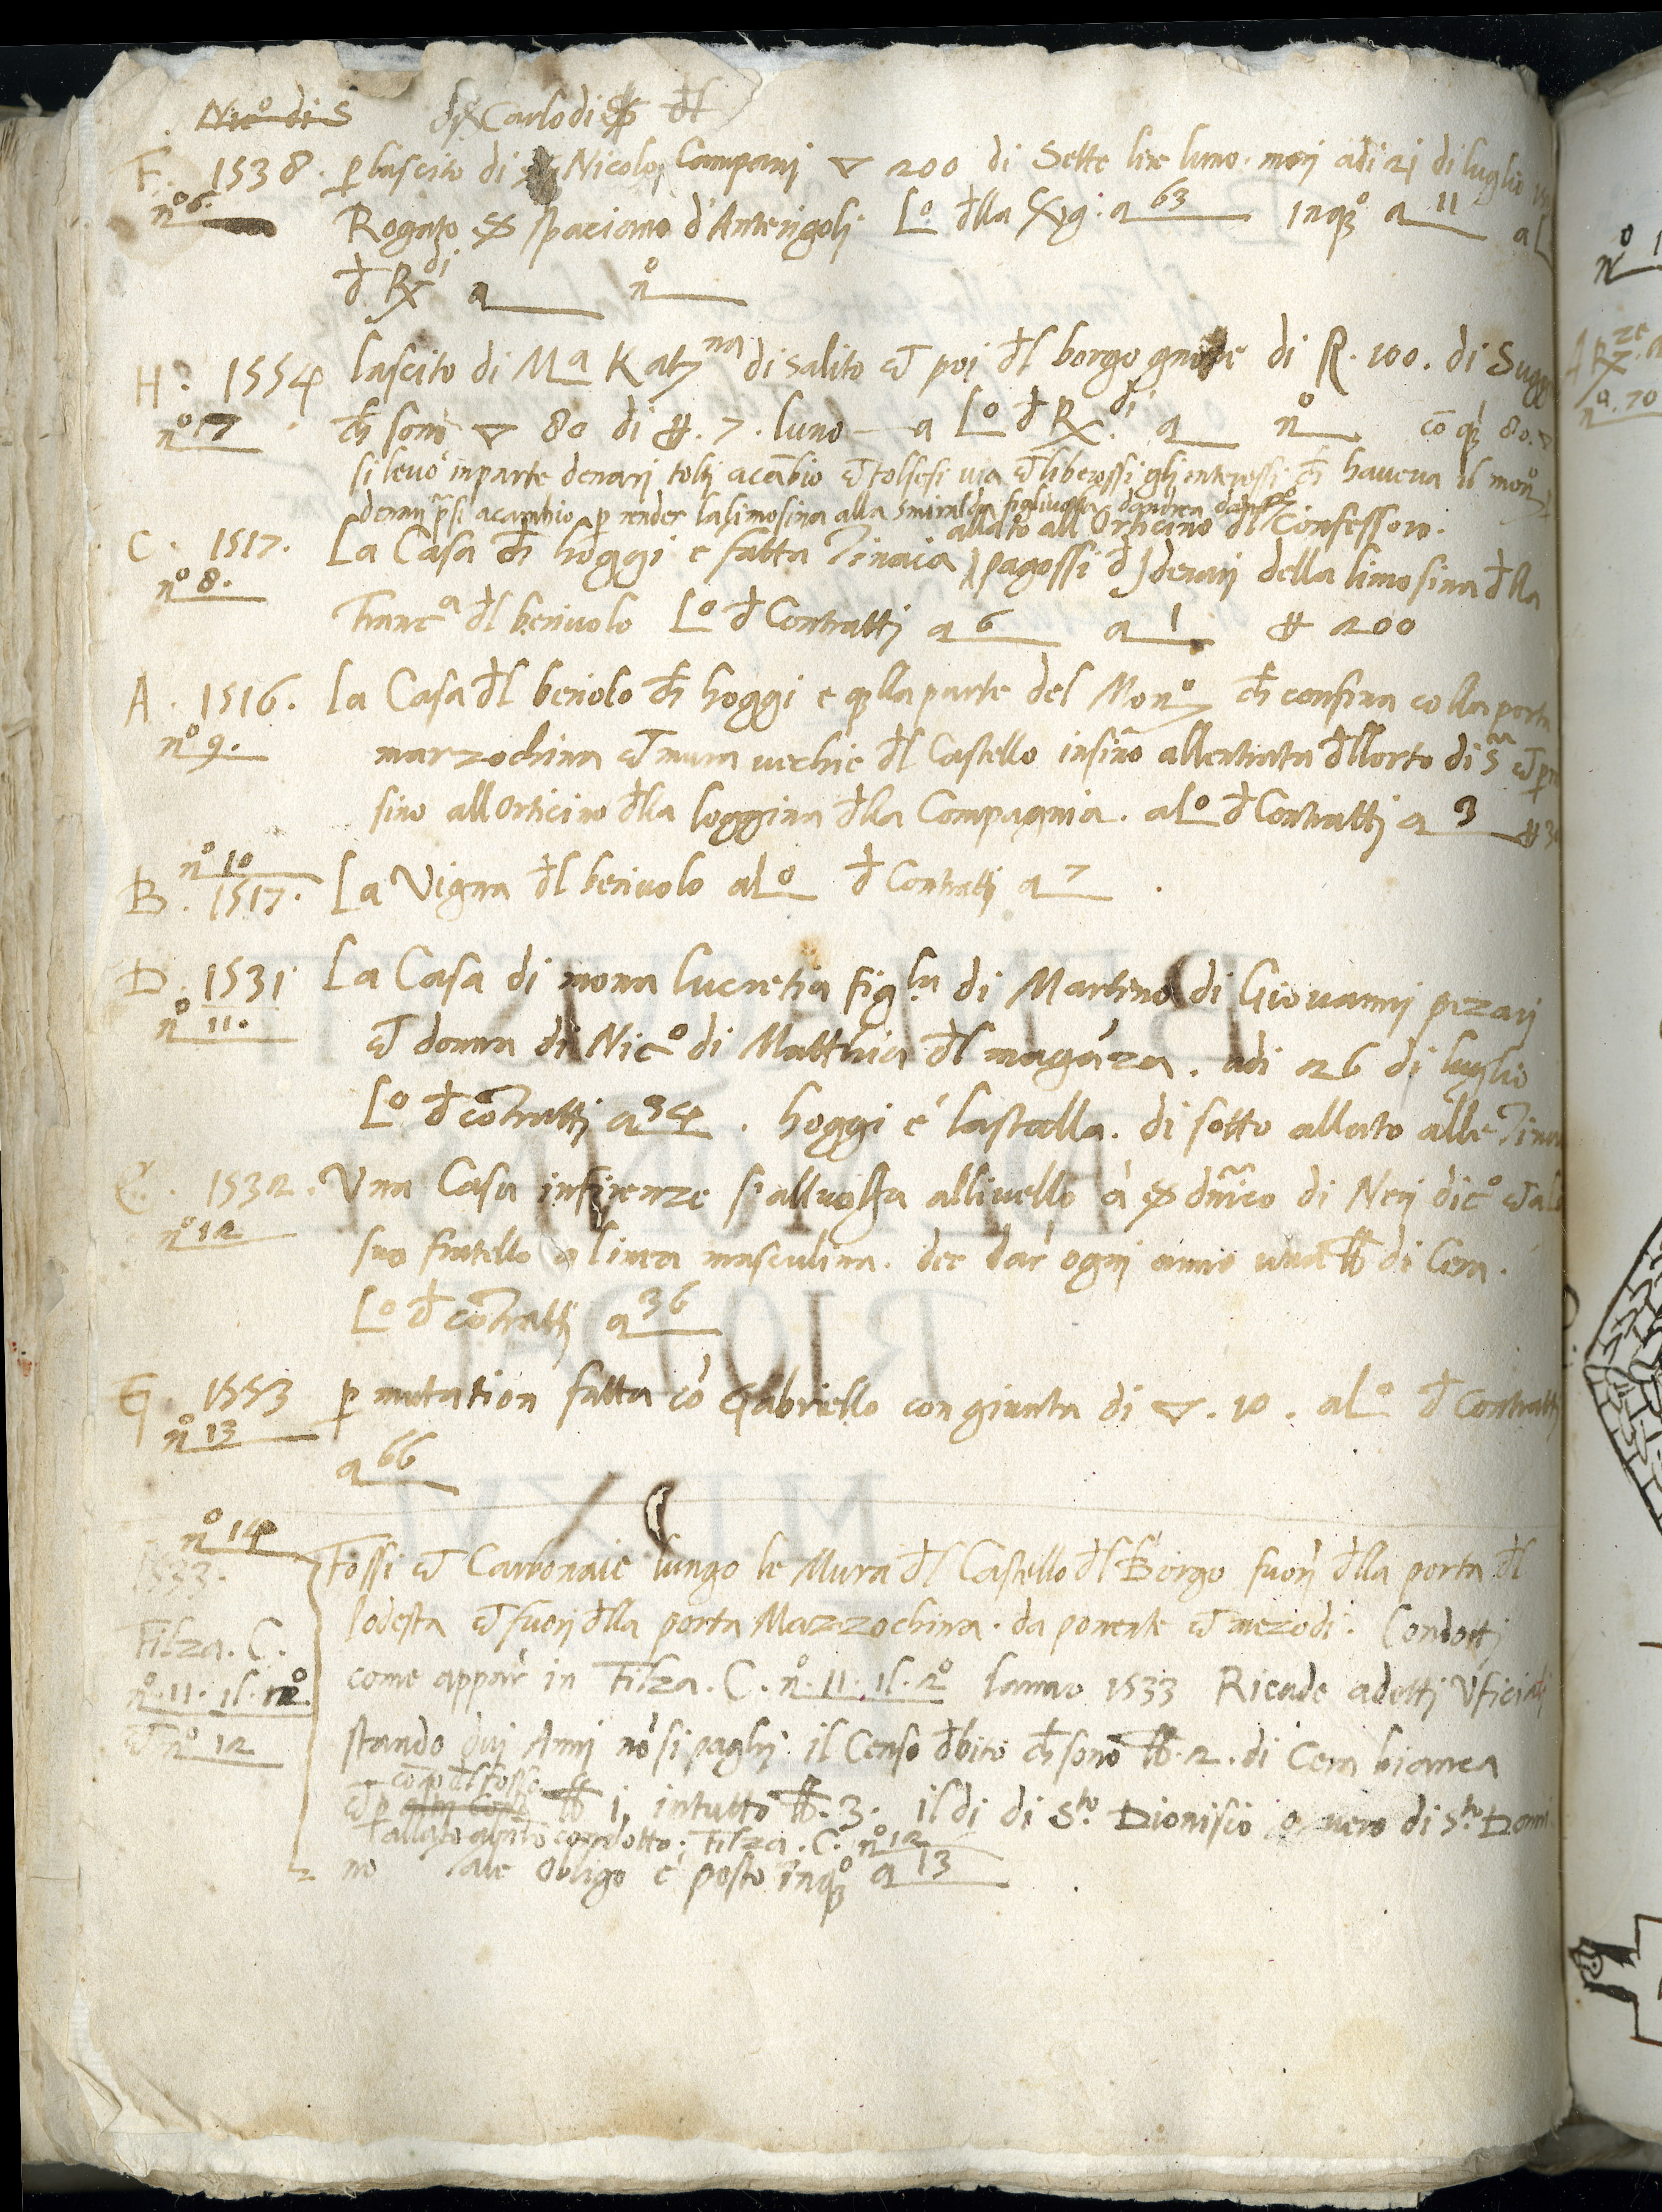 Nic.o di S Carlo di
F. 1538. p lascito di Nicolo Campani ▽ 200 di Sette lire luno. mori adi 21 di luglio
n.o 6. Rogato s. spaciano d'Antengoli L.o dlla a 63 inq.o a 11 a L
d Rdi a n.o
H. 1554 lascito di M.a Kat.na di salito et poi dl borgo di R. 100. di Sugge
n.o 7 ch sono ▽ 80 di #. 7. luno a L.o d R.di a n.o cō q 80. ▽
si levo inparte denari tolti acābio et tolsesi via et liberossi gli interessi ch haveva il mon.o
denari psi acambio p render lalimosina alla smiralda dandrea
allato all Orticino dl Confessoro.
C. 1517. La Casa ch hoggi e fatta Tinaia pagossi d denari della limosina dlla
n.o 8. Franc.a dl benivolo L.o d Contratti a 6 a 1 # 200
A. 1516. La Casa dl beniolo ch hoggi e qlla parte del Mon.o ch confina colla porta
n.o 9. marzochina et mura vechie dl Castello insino allentrata dllorto di S
sino all Orticino dlla loggina dlla Compagnia. al.o d Contratti a 3 #
n.o 10
B. 1517. La Vigna dl benivolo al.o d Contratti a 7
D. 1531 La Casa di mona lucretia fig.la di Martino di Giovanni pezari
n.o 11. et donna di Nic.o di Matthia dl magaza. adi 26 di luglio
L.o d cōtratti a 34. hoggi é lastalla. di sotto allato alle Tina
E. 1532. Una Casa infirenze si allvolta allivello à s dnico di Neri dic.o et al
n.o 12 suo fratello a linea masculina. dee dar ogni anno una lb di Cera.
L.o d cōtratti a 36
G 1553 p mutation fatta cō Gabriello con giunta di ▽. 10. al.o d Contratti
n.o 13
a 66
n.o 14
1533. Fossi et Carbonaie lungo le Mura dl Castello dl Borgo fuori dlla porta dl
lodesta et fuori dlla porta Mazzochina. da ponente et mezodi. Condotti
Filza. C.
n.o 11. il. 2.o come appar in Filza. C. n.o 11. il. 2.o lanno 1533 Ricade adetti Uficiali
et n.o 12 stando dui Anni nō si paghi il Censo dbito ch sono lb. 2. di Cera bianca
cōp dl fosso
et p lb 1, intutto lb. 3. il di di S.to Dionisio o vero di S.to Domi
allato condotto; Filza. C. n.o 12
no tale obligo é posto inq.o a 13